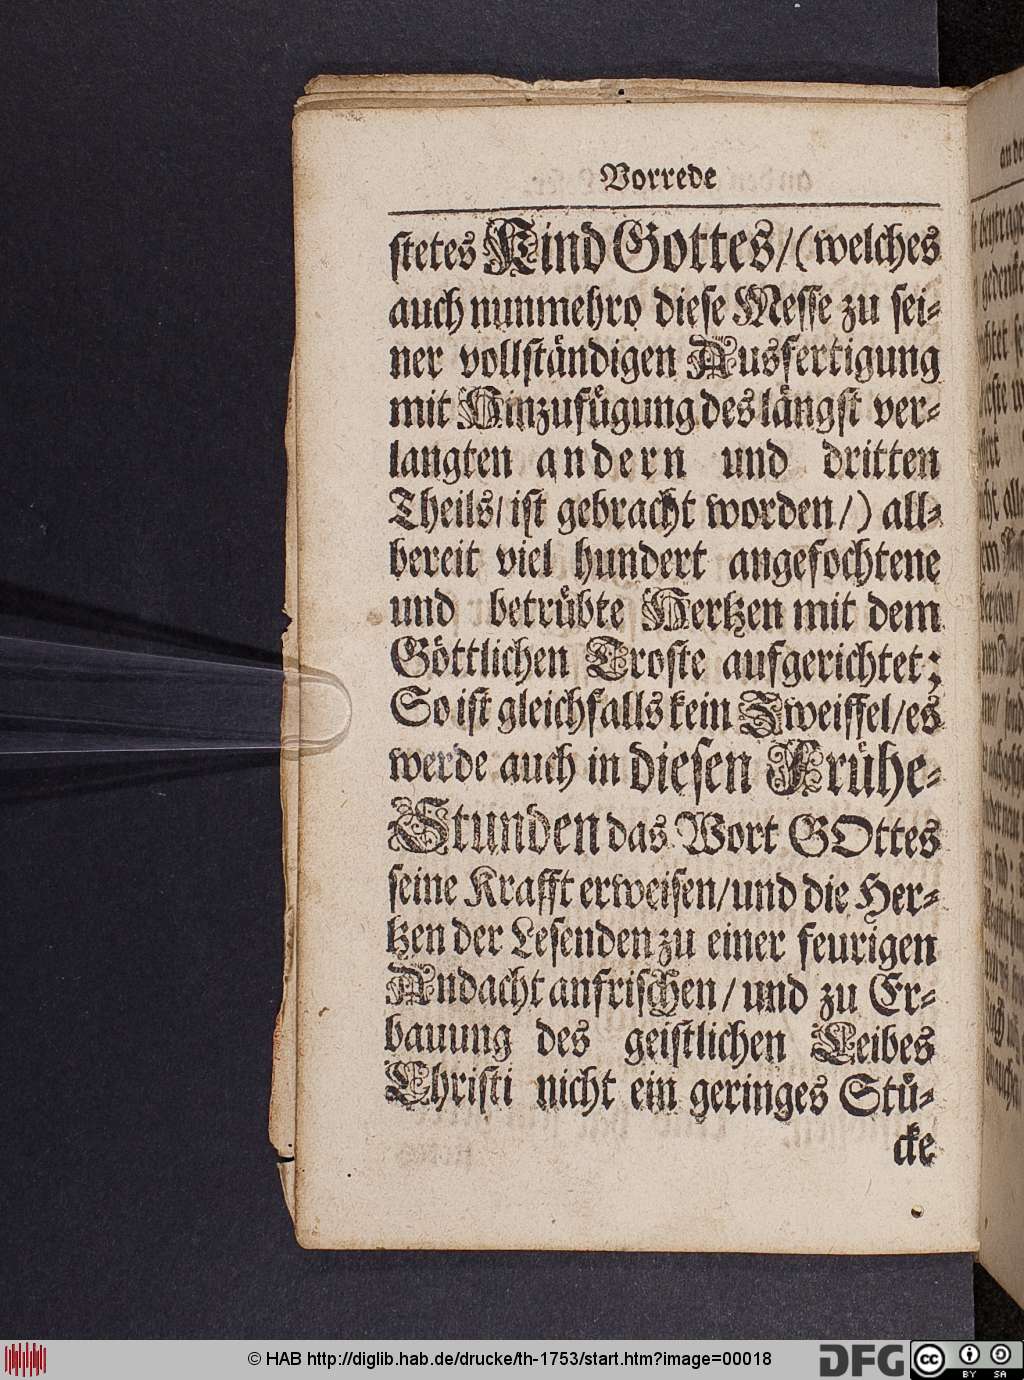 Vorrede
stetes Kind Gottes/ (welches
auch nunmehro diese Messe zu sei-
ner vollständigen Ausfertigung
mit Hinzufügung des längst ver-
langten andern und dritten
Theils/ ist gebracht worden/) all-
bereit viel hundert angefochtene
und betrübte Hertzen mit dem
Göttlichen Troste aufgerichtet;
So ist gleichfalls kein Zweiffel/ es
werde auch in diesen Frühe-
Stunden das Wort GOttes
seine Krafft erweisen/ und die Her-
tzen der Lesenden zu einer feurigen
Andacht anfrischen/ und zu Er-
bauung des geistlichen Leibes
Christi nicht ein geringes Stü-
cke
© HAB http://diglib.hab.de/drucke/th-1753/start.htm?image=00018
DFG
cc
BY SA